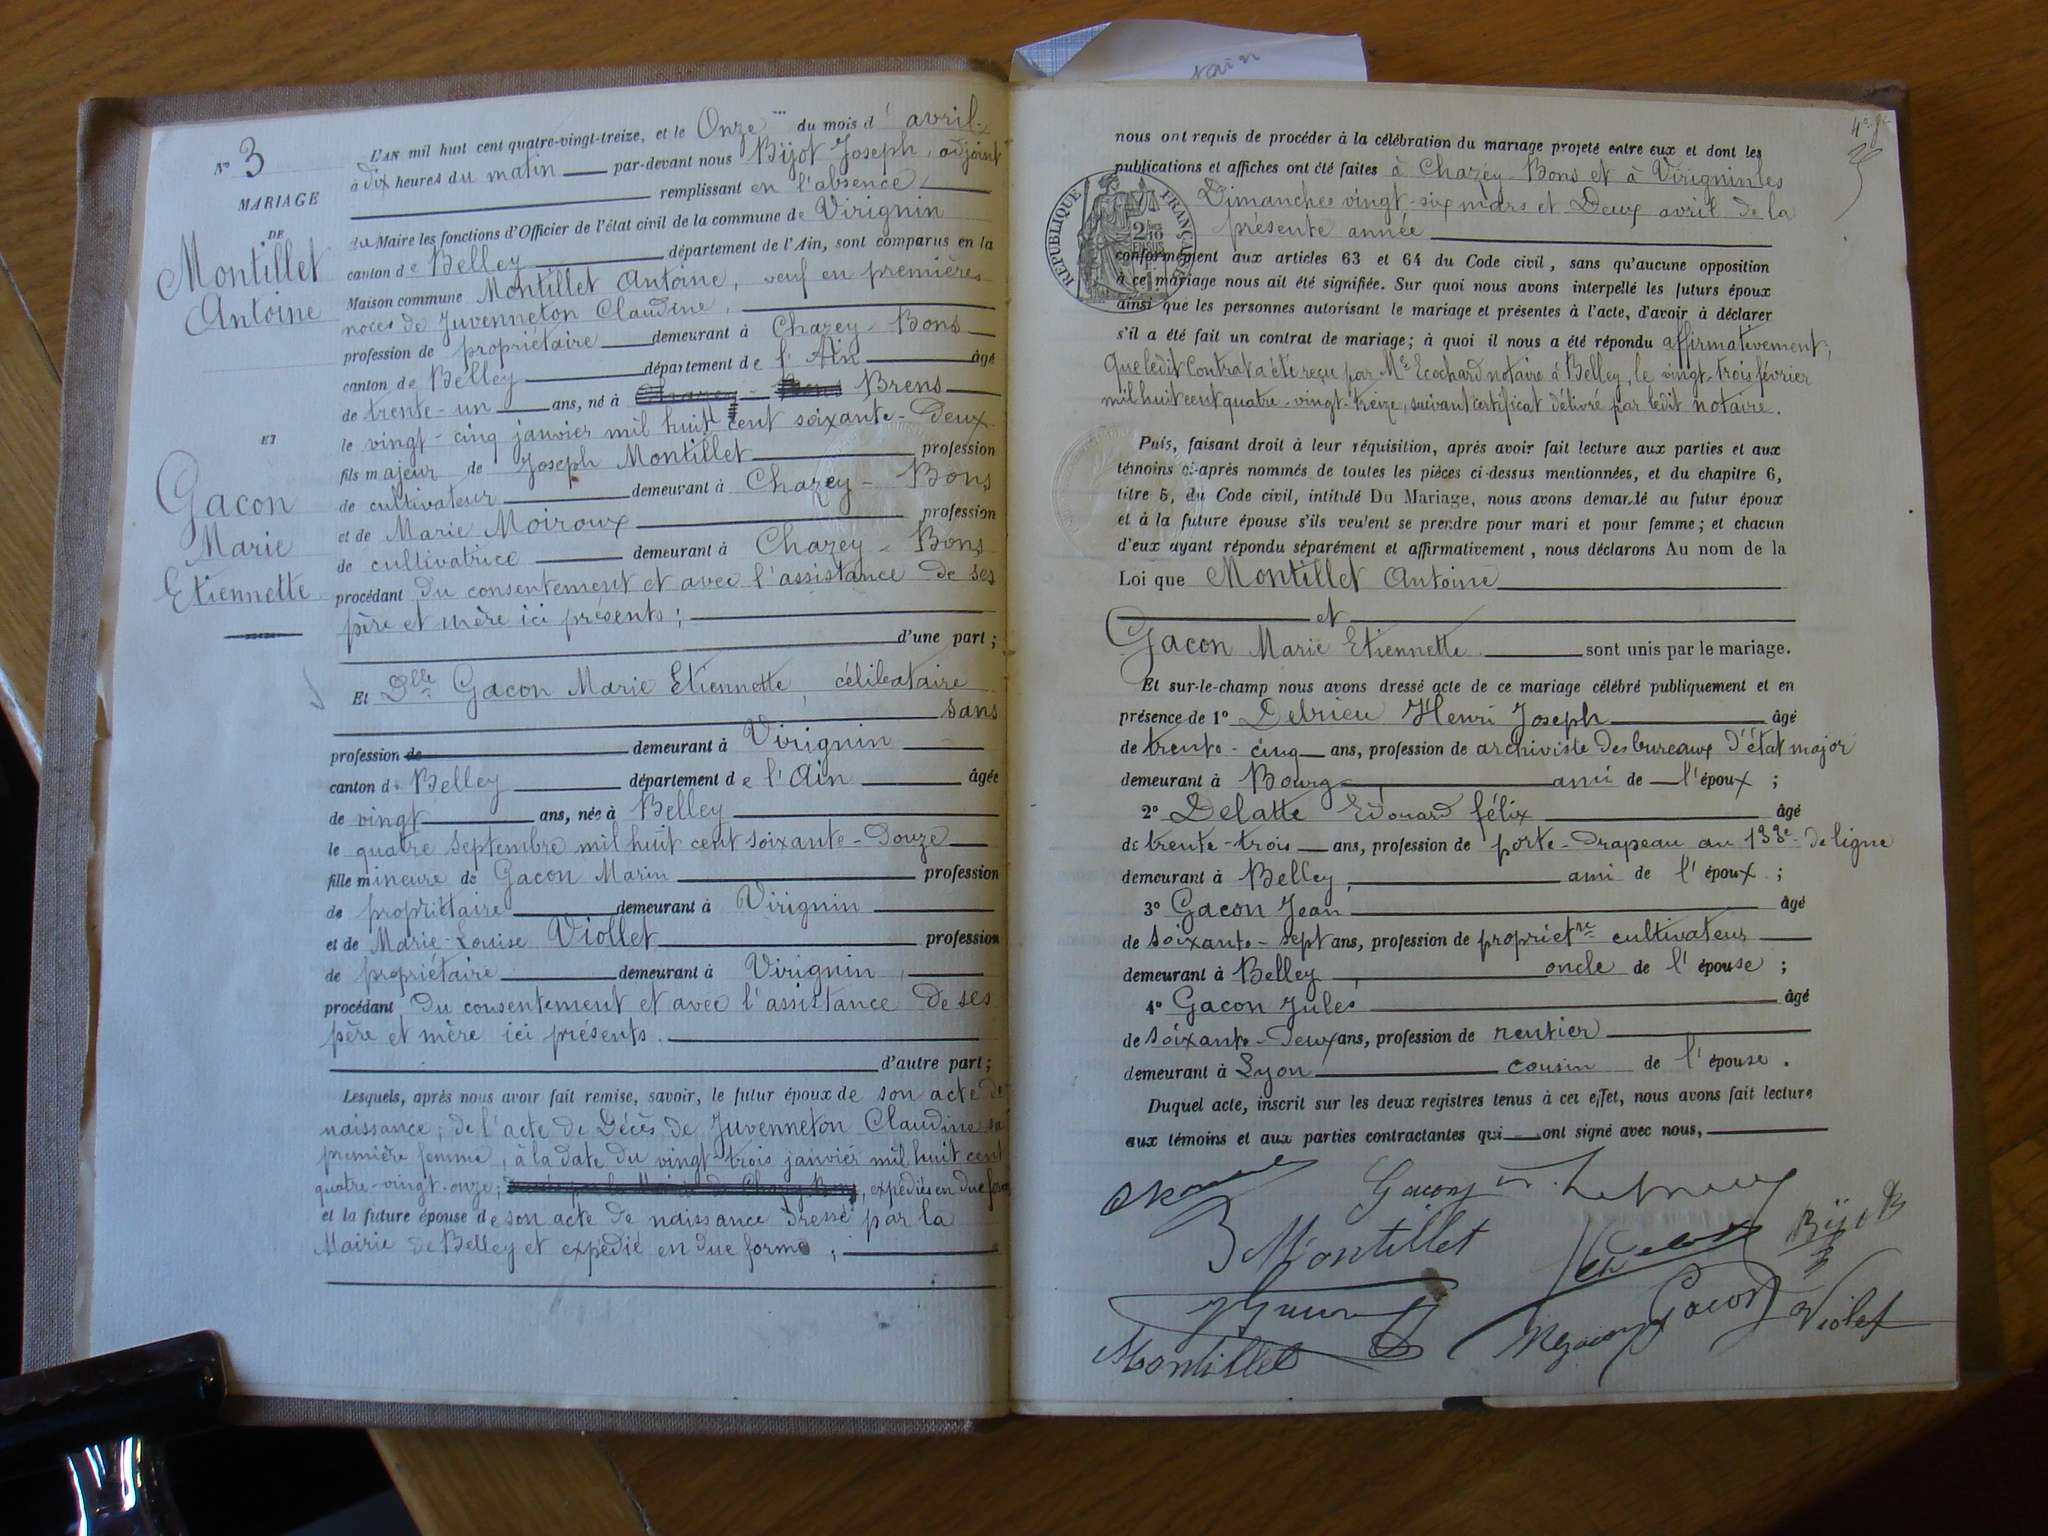 tain
N° 3
MARIAGE
DE
Montillet
Antoine
ET
Gacon
Marie
Etiennette
L'AN mil huit cent quatre-vingt-treize, et le Onze du mois d'avril
à dix heures du matin par-devant nous Bijot Joseph, adjoint
remplissant en l'absence
du Maire les fonctions d'Officier de l'état civil de la commune de Virignin
canton de Belley département de l'Ain, sont comparus en la
Maison commune Montillet Antoine, veuf en premières
noces de Juvenneton Claudine,
profession de propriétaire demeurant à Chazey-Bons
canton de Belley département de l'Ain âgé
de trente-un ans, né à Chazey-Bons Brens
le vingt-cinq janvier mil huit cent soixante-deux
fils majeur de Joseph Montillet profession
de cultivateur demeurant à Chazey-Bons
et de Marie Moiroux profession
de cultivatrice demeurant à Chazey-Bons
procédant du consentement et avec l'assistance de ses
père et mère ici présents;
d'une part;
Et Dlle Gacon Marie Etiennette, célibataire
sans
profession de demeurant à Virignin
canton de Belley département de l'Ain âgée
de vingt ans, née à Belley
le quatre septembre mil huit cent soixante-douze
fille mineure de Gacon Marin profession
de propriétaire demeurant à Virignin
et de Marie-Louise Viollet profession
de propriétaire demeurant à Virignin,
procédant du consentement et avec l'assistance de ses
père et mère ici présents.
d'autre part;
Lesquels, après nous avoir fait remise, savoir, le futur époux de son acte de
naissance; de l'acte de décès de Juvenneton Claudine sa
première femme, à la date du vingt-trois janvier mil huit cent
quatre-vingt-onze; expédiés en due forme
et la future épouse de son acte de naissance dressé par la
Mairie de Belley et expédié en due forme;
nous ont requis de procéder à la célébration du mariage projeté entre eux et dont les
publications et affiches ont été faites à Chazey-Bons et à Virignin les
Dimanches vingt-six mars et Deux avril de la
présente année
RÉPUBLIQUE FRANÇAISE
conformément aux articles 63 et 64 du Code civil, sans qu'aucune opposition
à ce mariage nous ait été signifiée. Sur quoi nous avons interpellé les futurs époux
ainsi que les personnes autorisant le mariage et présentes à l'acte, d'avoir à déclarer
s'il a été fait un contrat de mariage; à quoi il nous a été répondu affirmativement,
Que ledit Contrat a été reçu par Me Ecochard notaire à Belley, le vingt-trois février
mil huit cent quatre-vingt-treize, suivant certificat délivré par ledit notaire.
Puis, faisant droit à leur réquisition, après avoir fait lecture aux parties et aux
témoins ci-après nommés de toutes les pièces ci-dessus mentionnées, et du chapitre 6,
titre 5, du Code civil, intitulé Du Mariage, nous avons demandé au futur époux
et à la future épouse s'ils veulent se prendre pour mari et pour femme; et chacun
d'eux ayant répondu séparément et affirmativement, nous déclarons Au nom de la
Loi que Montillet Antoine
et
Gacon Marie Etiennette sont unis par le mariage.
Et sur-le-champ nous avons dressé acte de ce mariage célébré publiquement et en
présence de 1° Henri Joseph âgé
de trente-cinq ans, profession de archiviste des bureaux d'état major
demeurant à Bourg ami de l'époux;
2° Delatte Edouard félix âgé
de trente-trois ans, profession de porte-drapeau au 133e de ligne
demeurant à Belley, ami de l'époux;
3° Gacon Jean âgé
de soixante-sept ans, profession de propriétre cultivateur
demeurant à Belley oncle de l'épouse;
4° Gacon Jules âgé
de soixante-deux ans, profession de rentier
demeurant à Lyon cousin de l'épouse.
Duquel acte, inscrit sur les deux registres tenus à cet effet, nous avons fait lecture
aux témoins et aux parties contractantes qui ont signé avec nous,
Gacon
Bijot
Montillet
Gacon
Violet
Montillet